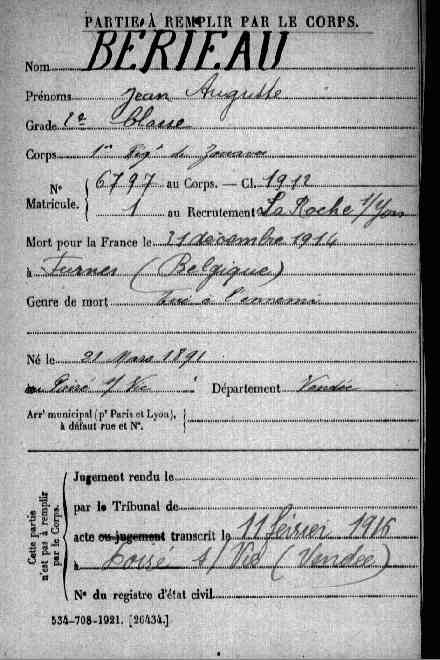 PARTIE À REMPLIR PAR LE CORPS.
Nom BERIEAU
Prénoms Jean Auguste
Grade 2e Classe
Corps 1er Rég' de Zouaves
N° Matricule. { 6797 au Corps. — Cl. 1912
1 au Recrutement La Roche s/Yon
Mort pour la France le 21 décembre 1914
à Furnes (Belgique)
Genre de mort Tué à l'ennemi
Né le 21 Mars 1891
Poiré s/ Vie Département Vendée
Arr' municipal (p' Paris et Lyon),
à défaut rue et N°.
Cette partie
n'est pas à remplir
par le Corps.
Jugement rendu le
par le Tribunal de
acte ou jugement transcrit le 11 février 1915
à Poiré s/ Vie (Vendée)
N° du registre d'état civil
534-708-1921. [26434.]